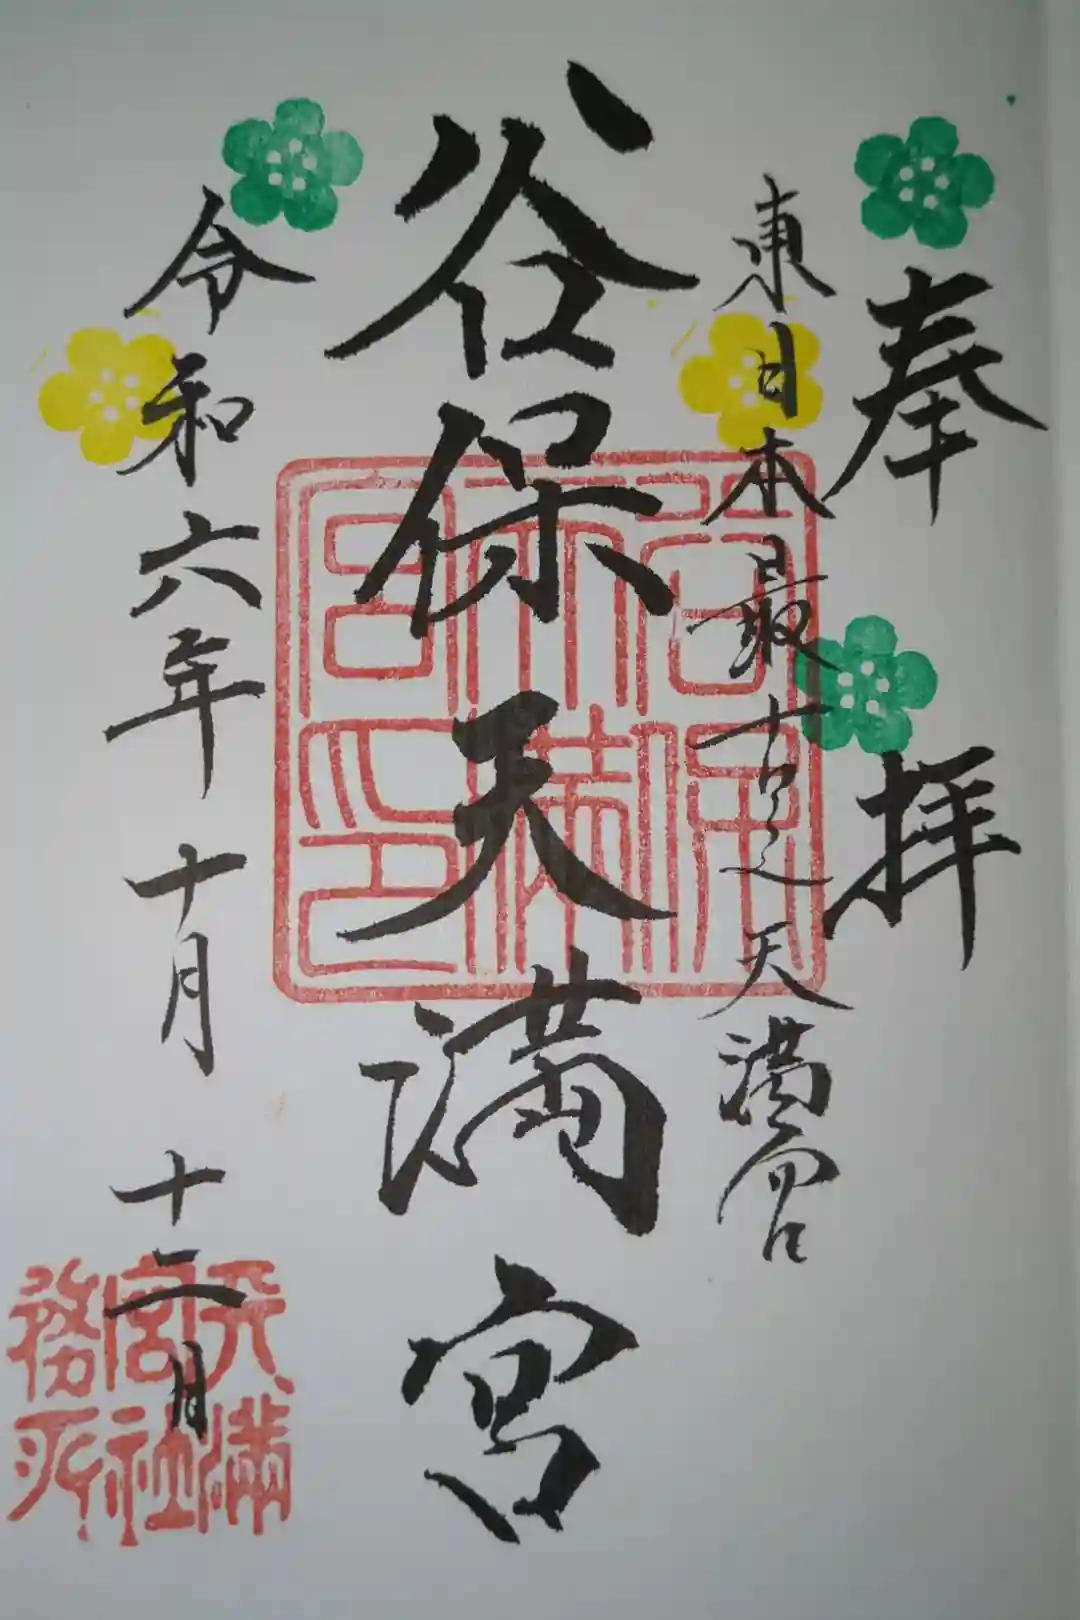 奉拝
東日本最古之天満宮
谷保天満宮
谷保天満宮印
令和六年十月十二日
天満宮社務所